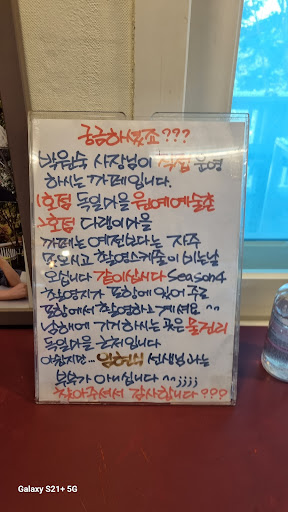 궁금하셨죠???
박원숙 사장님이 직접 운영
하시는 까페입니다.
1호점 독일마을 원예예술촌
2호점 다랭이마을
까페는 예전보다는 자주
못오시고 촬영스케줄이 비는날
오십니다 같이삽시다 Season4
촬영지가 포항에 있어 주로
포항에서 촬영하고 계세요^^
남해에 거기하시는 곳은 물건리
독일마을 근처입니다
아참지만... 임현식 선생님과는
부부가 아니십니다^^;;;;
찾아주셔서 감사합니다???
Galaxy S21+ 5G